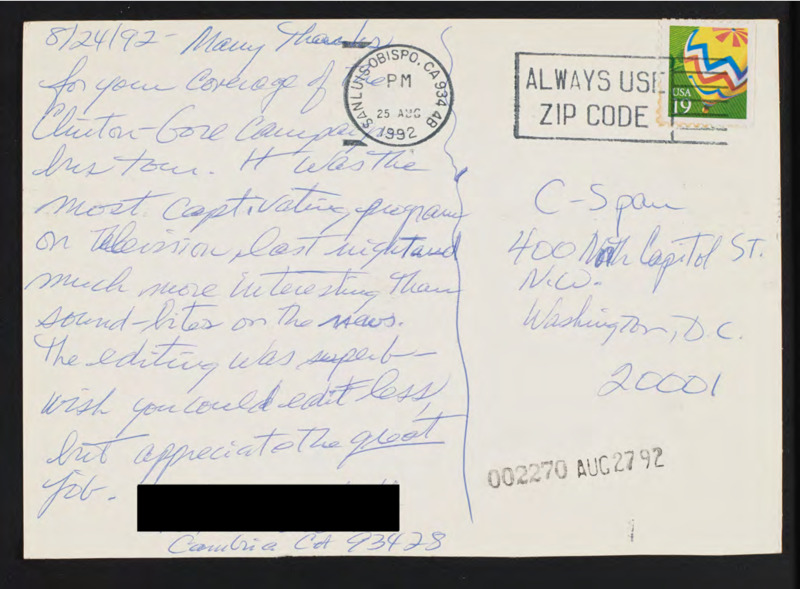 8/24/92- Many Thanks
for your coverage of the
Clinton-Gore Campaign
bus tour. It was the
most captivating program
on television last night and
much more interesting than
sound-bites on the news.
The editing was superb-
wish you could edit less,
but appreciate the great
job.
Cambria CA 93428
SAN LUIS OBISPO, CA 934
PM
25 AUG
1992
ALWAYS USE
ZIP CODE
USA
19
C-Span
400 North Capitol St.
N.W.
Washington, D.C.
20001
002270 AUG 27 92